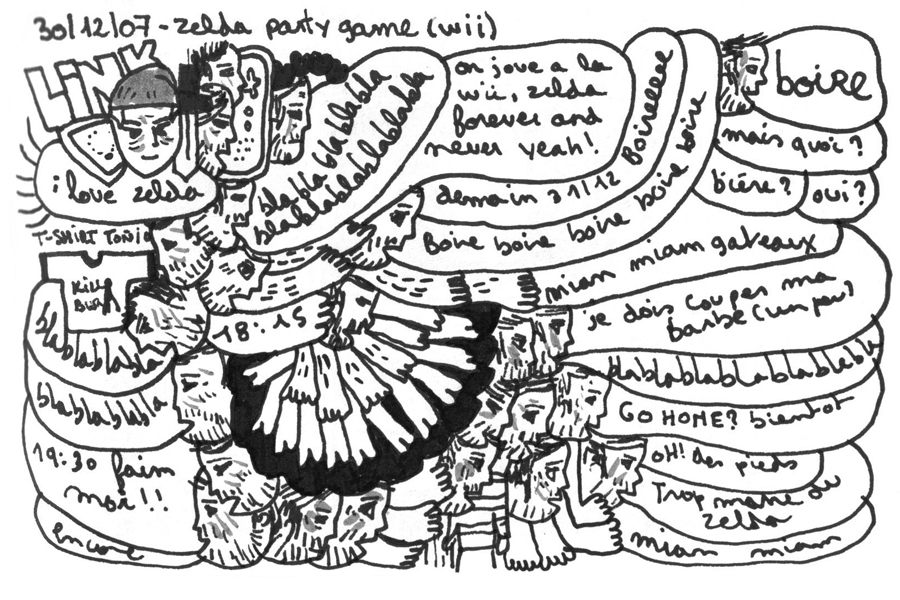 30/12/07 - zelda party game (wii)
LiNK
i love zelda
blablablablabla
blablablablablabla
on joue a la
wii, zelda
forever and
never yeah!
demain 31/12 Boireeee
Boire boire boire boire boire boire
boire
mais quoi?
bière? oui?
miam miam gateaux
je dois couper ma
barbe (un peu)
T-SHIRT TONIO
KiLL
18:15
blablablabla
blablablabla
19:30 faim
moi!!
Encore
blablablablablablabla
GO HOME? bientot
OH! des pieds
Trop marre du
zelda
miam miam